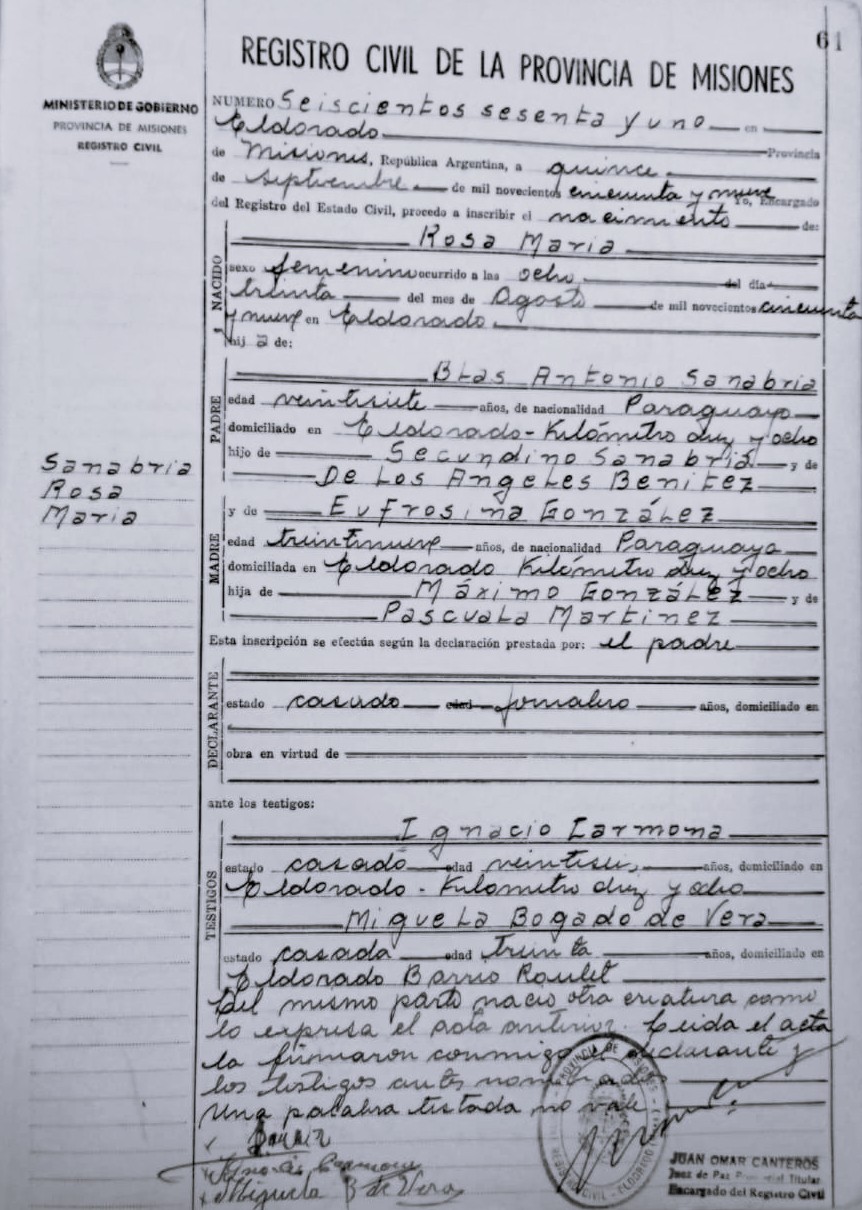 61
REGISTRO CIVIL DE LA PROVINCIA DE MISIONES
MINISTERIO DE GOBIERNO
PROVINCIA DE MISIONES
REGISTRO CIVIL
NUMERO Seiscientos sesenta y uno en
Eldorado Provincia
de Misiones, República Argentina, a quince
de septiembre de mil novecientos cincuenta y nueve Yo, Encargado
del Registro del Estado Civil, procedo a inscribir el nacimiento de:
NACIDO
Rosa Maria
sexo femenino ocurrido a las ocho del día
treinta del mes de Agosto de mil novecientos cincuenta
y nueve en Eldorado.
hij a de:
PADRE
Blas Antonio Sanabria
edad veintisiete años, de nacionalidad Paraguaya
domiciliado en Eldorado - Kilómetro diez y ocho
hijo de Secundino Sanabria y de
De Los Angeles Benitez
Sanabria
Rosa
Maria
MADRE
y de Eufrosina González
edad treintinueve años, de nacionalidad Paraguaya
domiciliada en Eldorado Kilómetro diez y ocho
hija de Máximo González y de
Pascuala Martinez
Esta inscripción se efectúa según la declaración prestada por: el padre
DECLARANTE
estado casado edad jornalero años, domiciliado en
obra en virtud de
ante los testigos:
TESTIGOS
Ignacio Carmona
estado casado edad veintiseis, años, domiciliado en
Eldorado - Kilómetro diez y ocho
Miguela Bogado de Vera
estado casada edad treinta años, domiciliado en
Eldorado Barrio Roulet
Del mismo parto nacio otra criatura como
lo expresa el acta anterior. Leida el acta
la firmaron conmigo el declarante y
los testigos antes nombrados
Una palabra testada no vale
Ignacio Carmona
Miguela B de Vera
PROVINCIA DE MISIONES
REGISTRO CIVIL - ELDORADO
JUAN OMAR CANTEROS
Juez de Paz Titular
Encargado del Registro Civil